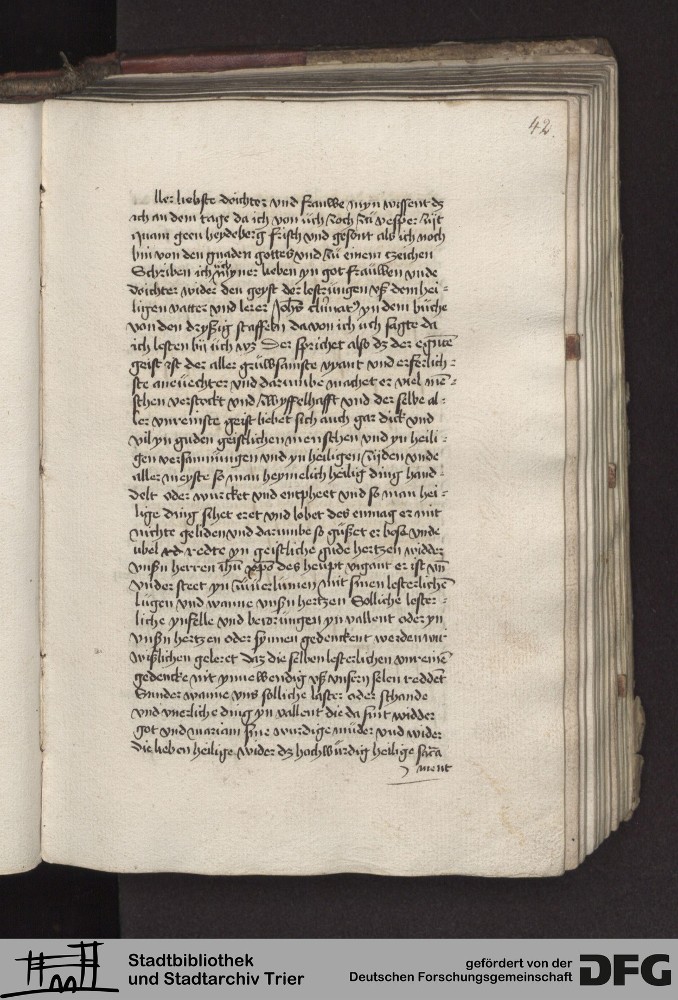 42.
ller liebste doichter vnd frauwe myn wissent dz
ich an dem tage da ich von uch zoch zu vesper zijt
quam geen heydeberg frisch vnd gesont als ich noch
bin von den gnaden gottes vnd zu einem czeichen
Schriben ich uch myner lieben yn got frauwen vnde
doichter wider den geyst der lestrungen vß dem hei-
ligen vatter vnd lerer Johes climac9 yn dem buche
von den dryßig staffeln da von ich uch sagte da
ich lesten bij uch wz Der sprichet also dz der egnte
geist ist der aller gruwsamste vyant vnd erferlich-
ste anfechter vnd darumbe machet er viel men-
schen verstockt vnd zwyffelhafft vnd der selbe al-
ler vnreinste geist liebet sich auch gar dick vnd
vil yn guden geistlichen menschen vnd yn heili-
gen versamnungen vnd yn heiligen zijden vnde
aller meyste so man heymelich heilig ding hand-
delt oder wurcket vnd entpheet vnd so man hei-
lige ding sihet eret vnd lobet des enmag er mit
nichte geliden vnd darumbe so gußet er bose vnde
ubel redte yn geistliche gude hertzen widder
vnßn herren ihu xpo des heupt vigant er ist vn
vnder steet yn zu uerlumen mit sinen lesterliche
lugen vnd wanne vnßn hertzen Solliche lester-
liche ynfelle vnd bedrungen yn vallent oder yn
vnßn hertzen oder synnen gedenckent werden wir
wißlichen geleret daz die selben lesterlichen vnreine
gedencke nit ynnewendig vß vnsern selen reddet
Sunder wanne vns solliche laster oder schande
vnd vnerliche ding yn vallent die da sint widder
got vnd mariam sine wurdige muder vnd wider
die lieben heilige wider dz hochwurdig heilige sacra
ment
Stadtbibliothek
und Stadtarchiv Trier
gefördert von der
Deutschen Forschungsgemeinschaft
DFG